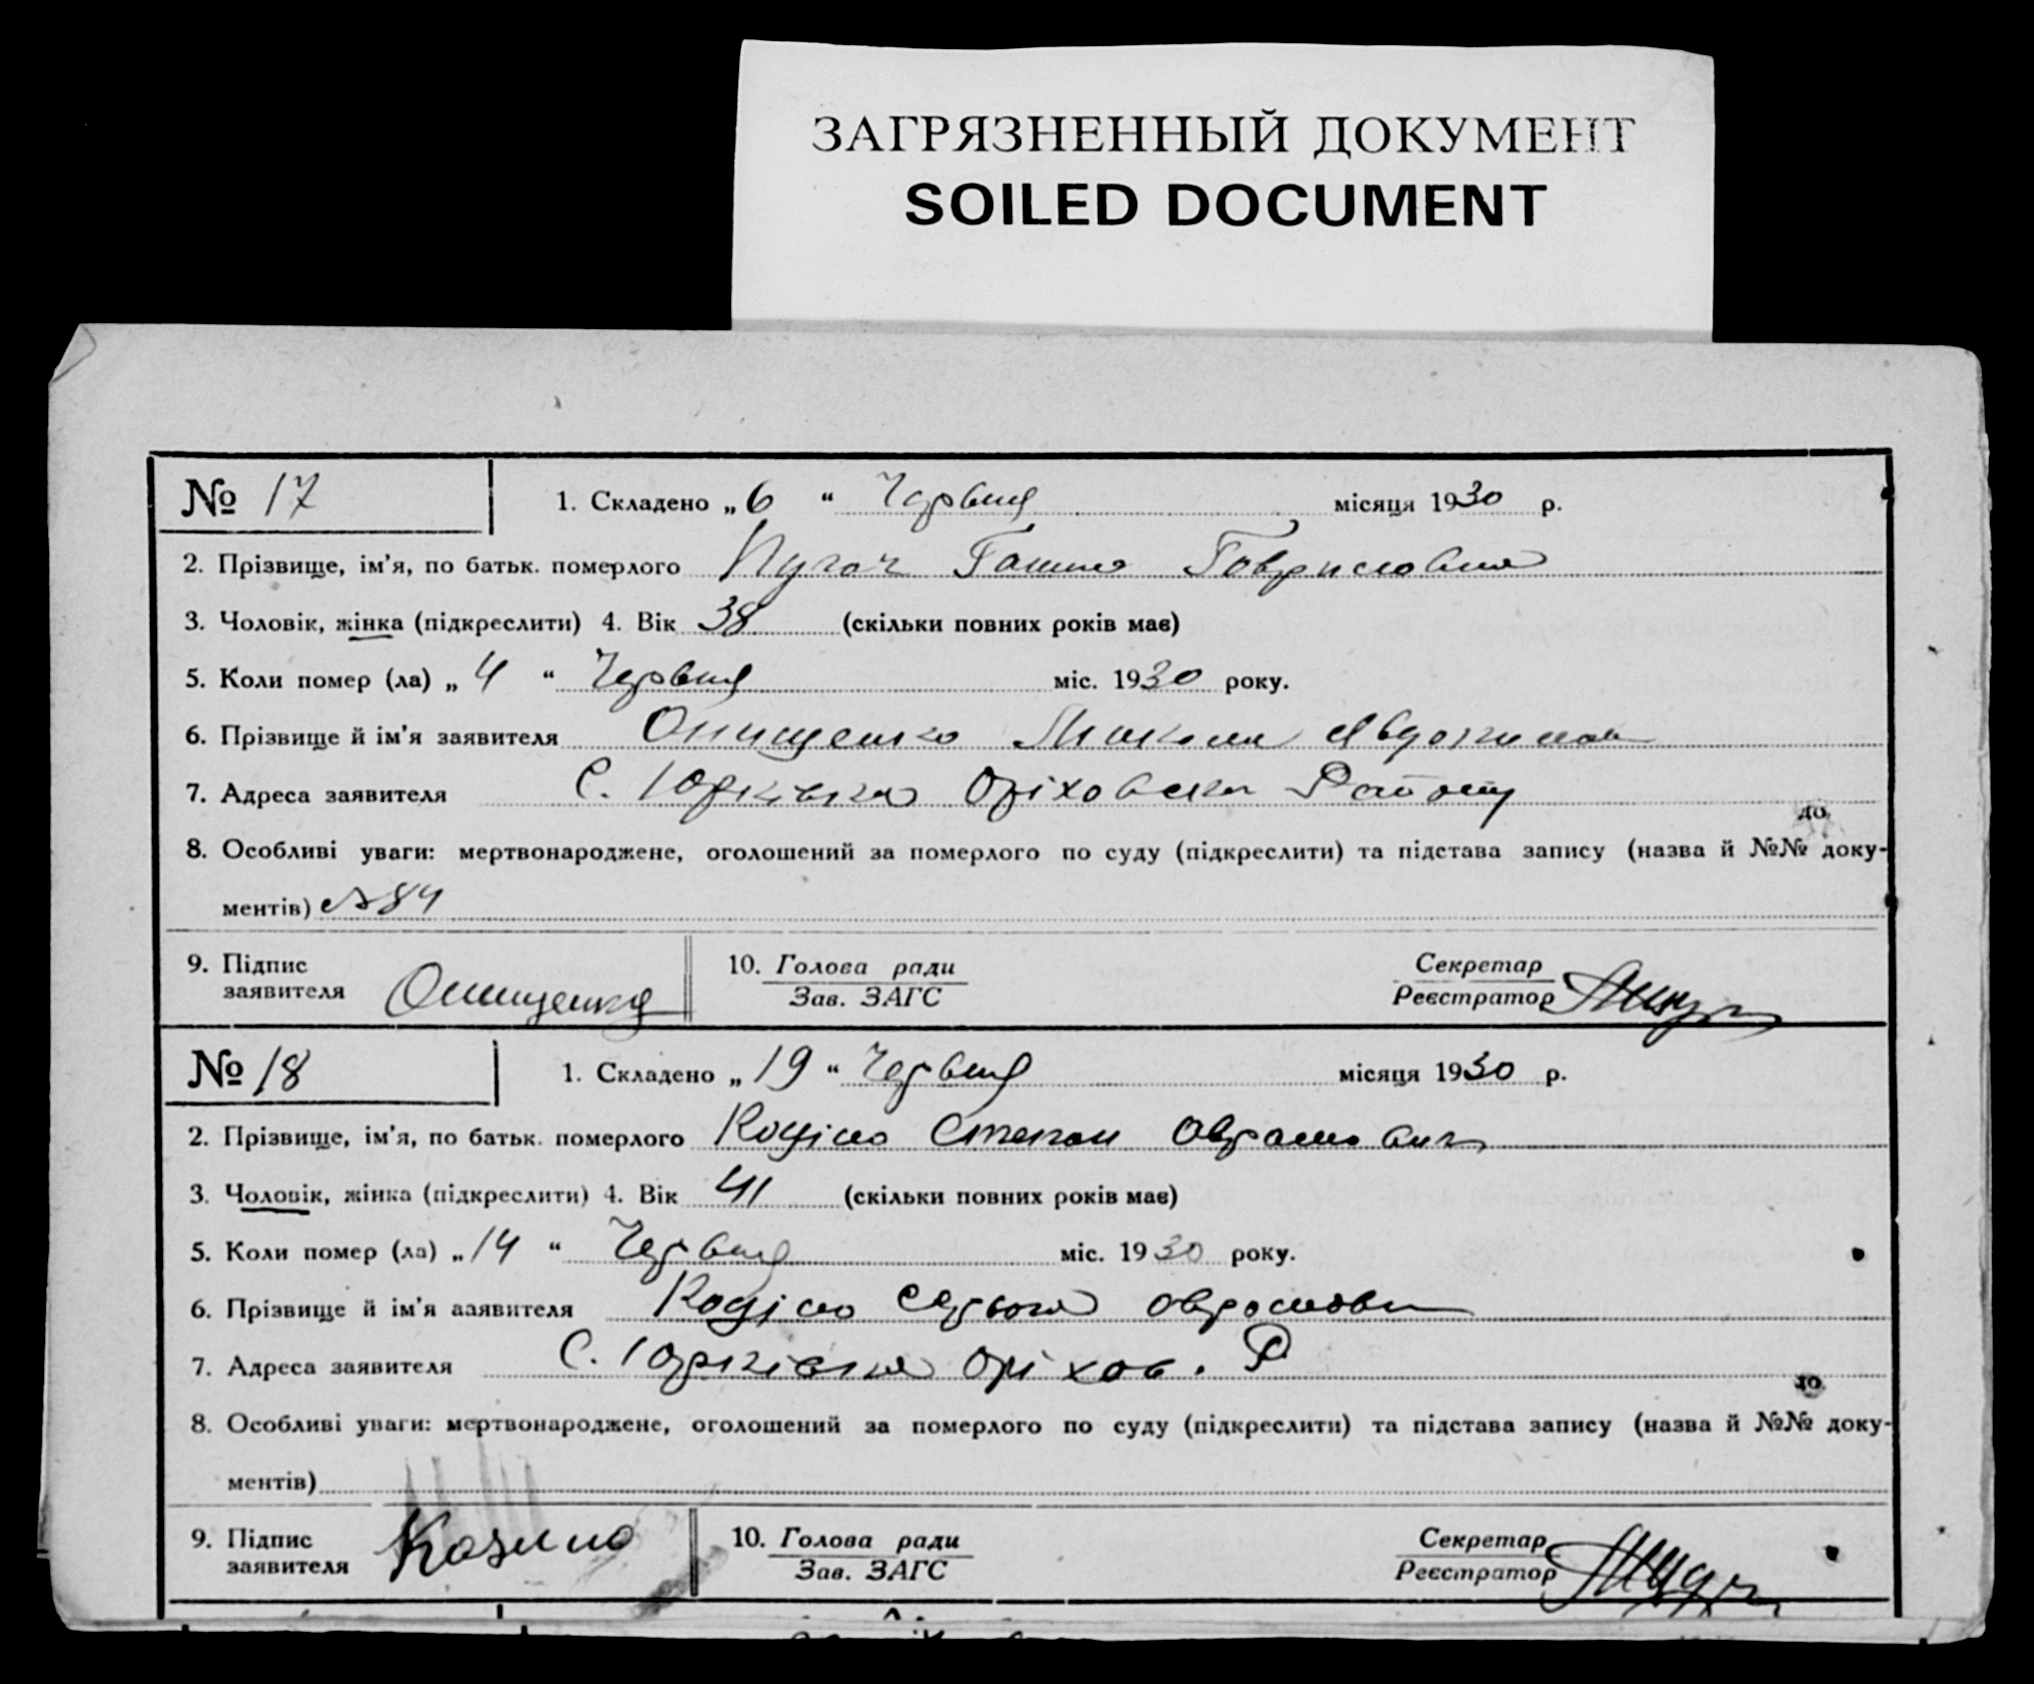 ЗАГРЯЗНЕННЫЙ ДОКУМЕНТ
SOILED DOCUMENT
№ 17
1. Складено „ 6 “ Червня місяця 1930 р.
2. Прізвище, ім’я, по батьк. померлого Пугач Ганна Гавриловна
3. Чоловік, жінка (підкреслити) 4. Вік 38 (скільки повних років має)
5. Коли помер (ла) „ 4 “ Червня міс. 1930 року.
6. Прізвище й ім’я заявителя Онищенко
7. Адреса заявителя С. Юрківка Оріховськ Району
до
8. Особливі уваги: мертвонароджене, оголошений за померлого по суду (підкреслити) та підстава запису (назва й №№ доку-
ментів) № 84
9. Підпис заявителя Онищенко
10. Голова ради
Зав. ЗАГС
Секретар
Реєстратор
№ 18
1. Складено „ 19 “ Червня місяця 1930 р.
2. Прізвище, ім’я, по батьк. померлого Степан
3. Чоловік, жінка (підкреслити) 4. Вік 41 (скільки повних років має)
5. Коли помер (ла) „ 14 “ Червня міс. 1930 року.
6. Прізвище й ім’я заявителя
7. Адреса заявителя С. Юрківка Оріхов. Р
до
8. Особливі уваги: мертвонароджене, оголошений за померлого по суду (підкреслити) та підстава запису (назва й №№ доку-
ментів)
9. Підпис заявителя
10. Голова ради
Зав. ЗАГС
Секретар
Реєстратор